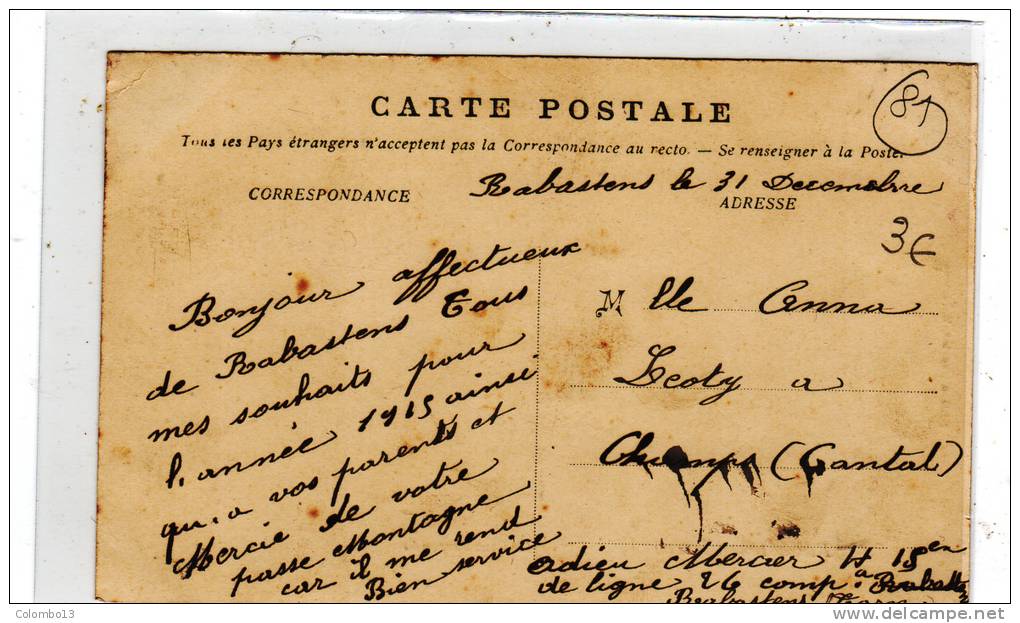 CARTE POSTALE
81
Tous les Pays étrangers n'acceptent pas la Correspondance au recto. — Se renseigner à la Poste.
Rabastens le 31 Decembre
CORRESPONDANCE
ADRESSE
3€
Bonjour affectueux
de Rabastens Tous
mes souhaits pour
l'année 1915 ainsi
qu'a vos parents et
Mercie de votre
passe Montagne
car il me rend
Bien service
Mlle Anna
Lcoty a
Champs (Cantal)
adieu Mercier 15
de ligne 26 comp.
Rabastens
Colombo13
delcampe.net